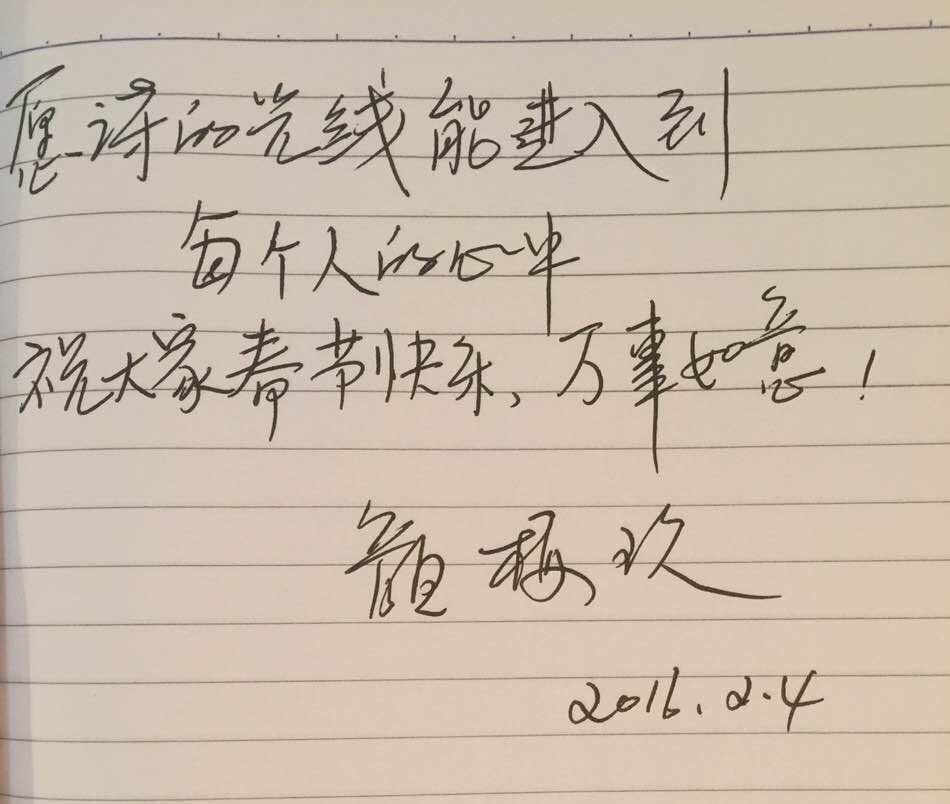 愿诗的光线能进入到
每个人的心中
祝大家春节快乐、万事如意！
颜梅玖
2016.2.4